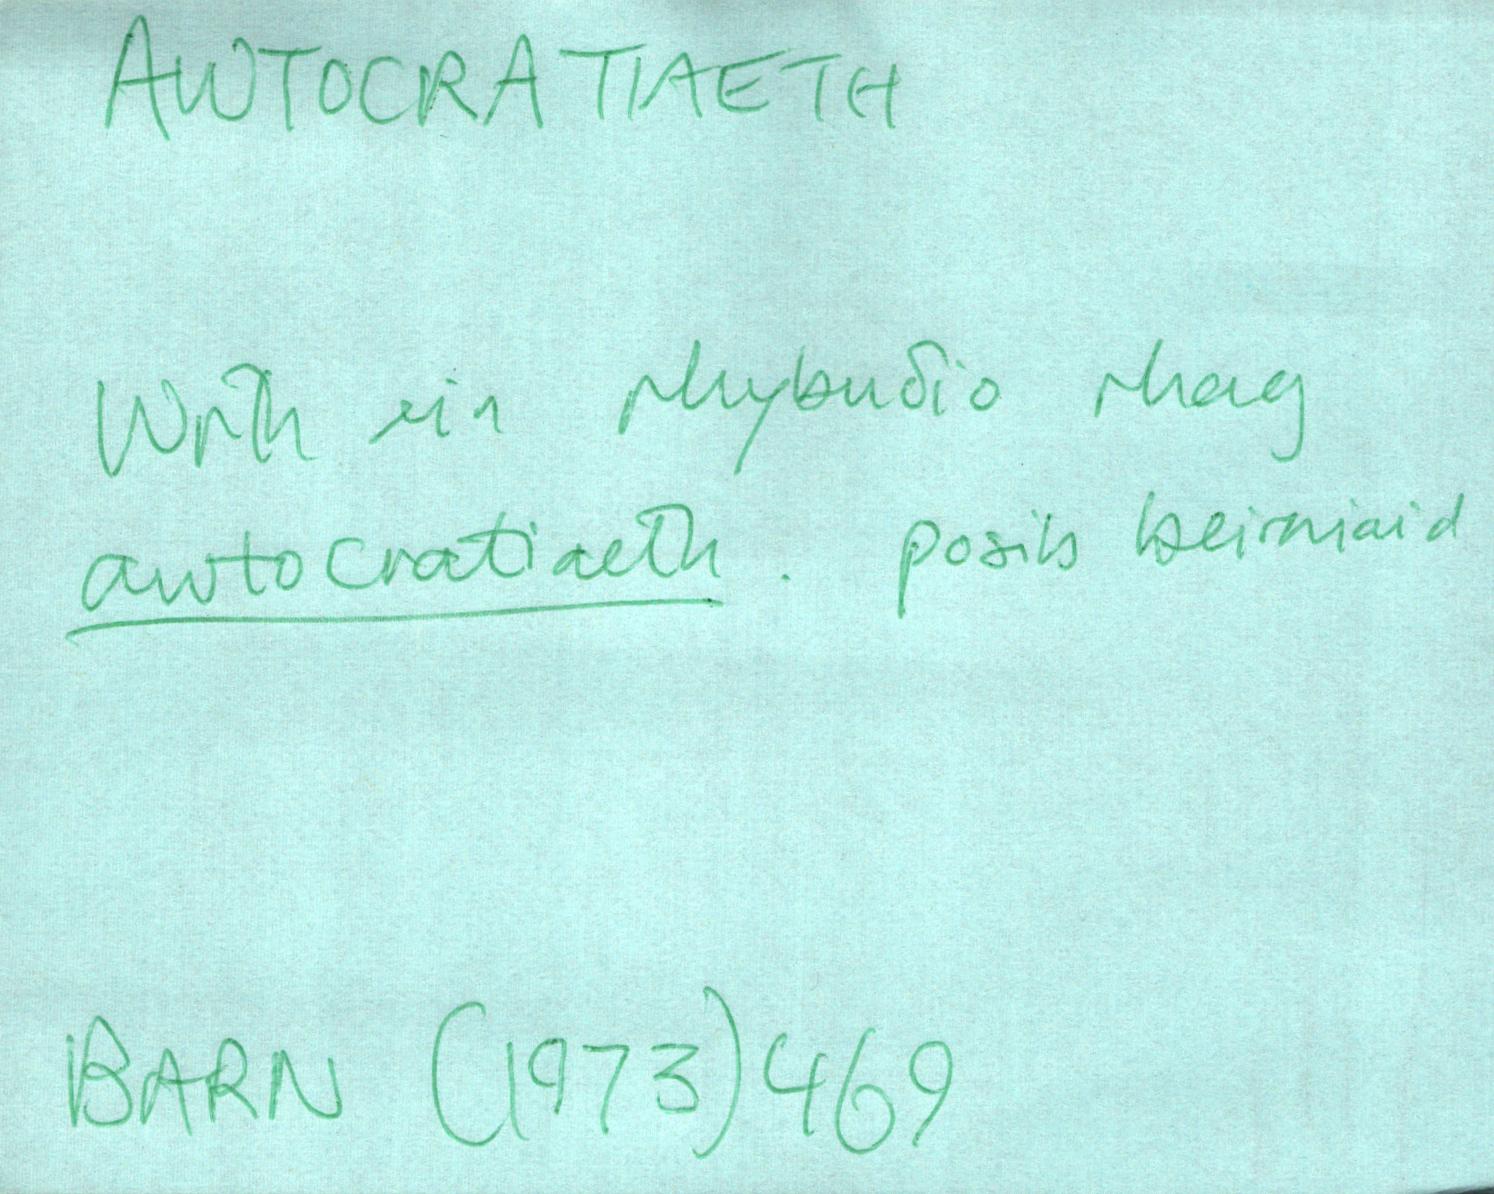 AWTOCRATIAETH
Wrth ein rhybuδio rhag
awtocratiaeth. posib beirniaid
BARN (1973) 469